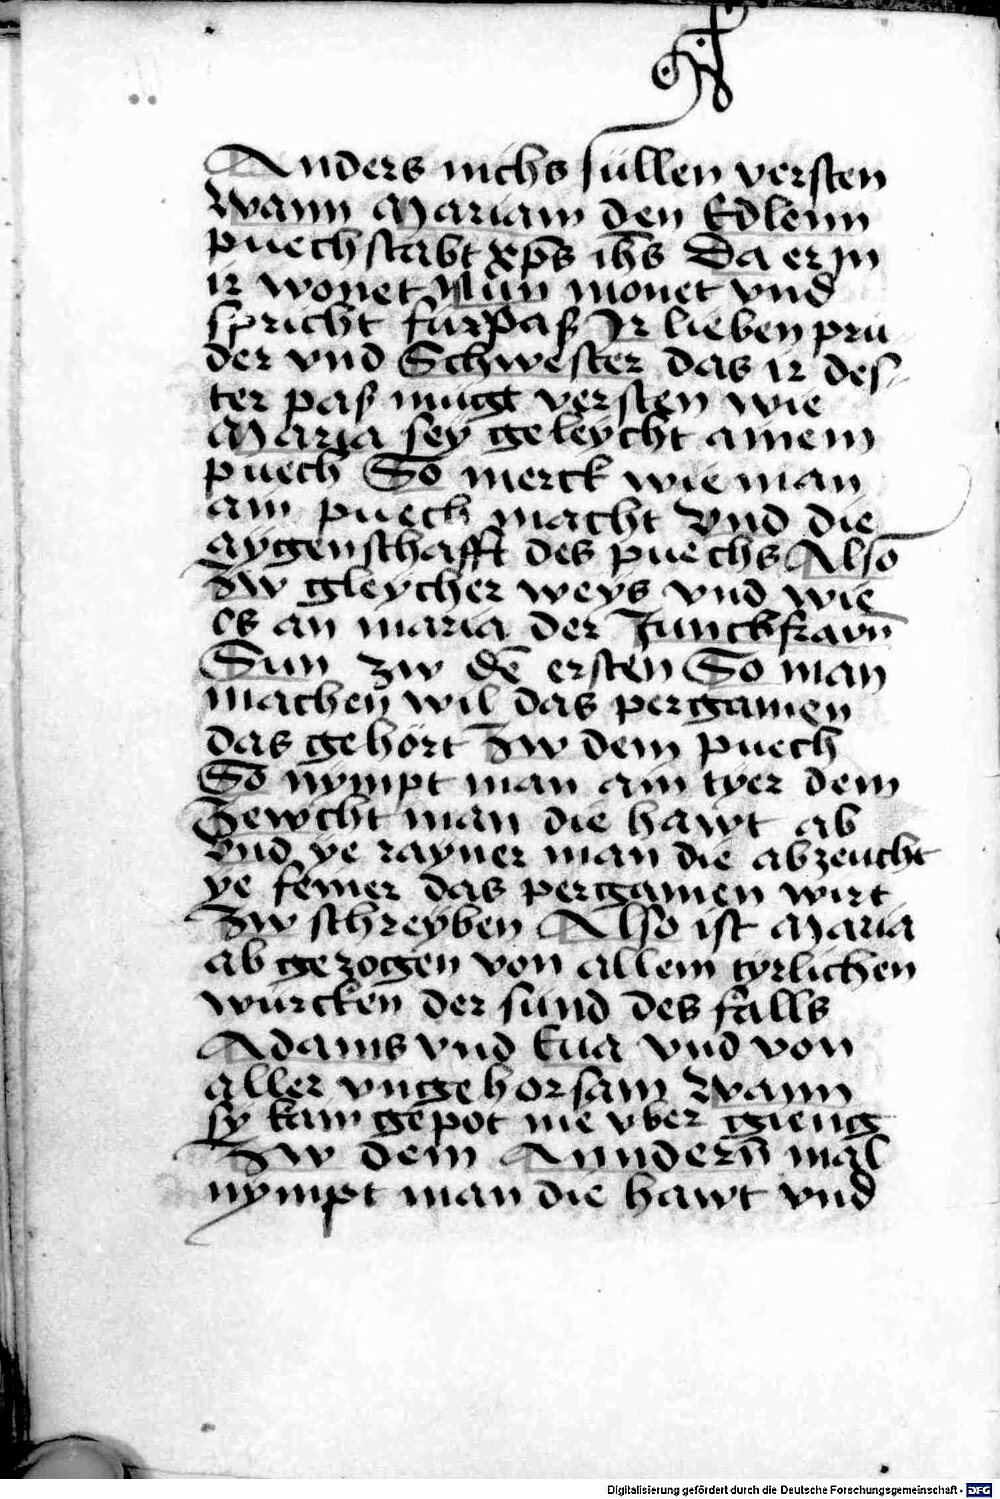 Anders nichs süllen versten
Wann Mariam den Edlenn
puechstabt xp̄s ih̄s Da er jn
ir wonet Nun monet vnd
spricht fürpas Jr lieben prü
der vnd Schwester das ir des-
ter pas mügt versten wie
Maria sey geleycht ainem
puech So merck wie man
ain puech macht Vnd die
aygenschafft des puechs Also
Zw gleycher weys vnd wie
es an maria der Junckfrawn̄
Sun Zw dē ersten So man
machen wil das pergamen
das gehört Zw dem puech
So nympt man ain tyer dem
Zewcht man die hawt ab
Vnd ye rayner man die abzeucht
ye feiner das pergamen wirt
Zw schreyben Also ist Maria
ab gezogen von allem tyrlichen
würcken der sünd des falls
Adams vnd Eua vnd von
aller vngehorsam Wann
sy kain gepot nie vber gieng
Zw dem Anndern̄ mal
nympt man die hawt vnd
Digitalisierung gefördert durch die Deutsche Forschungsgemeinschaft - DFG